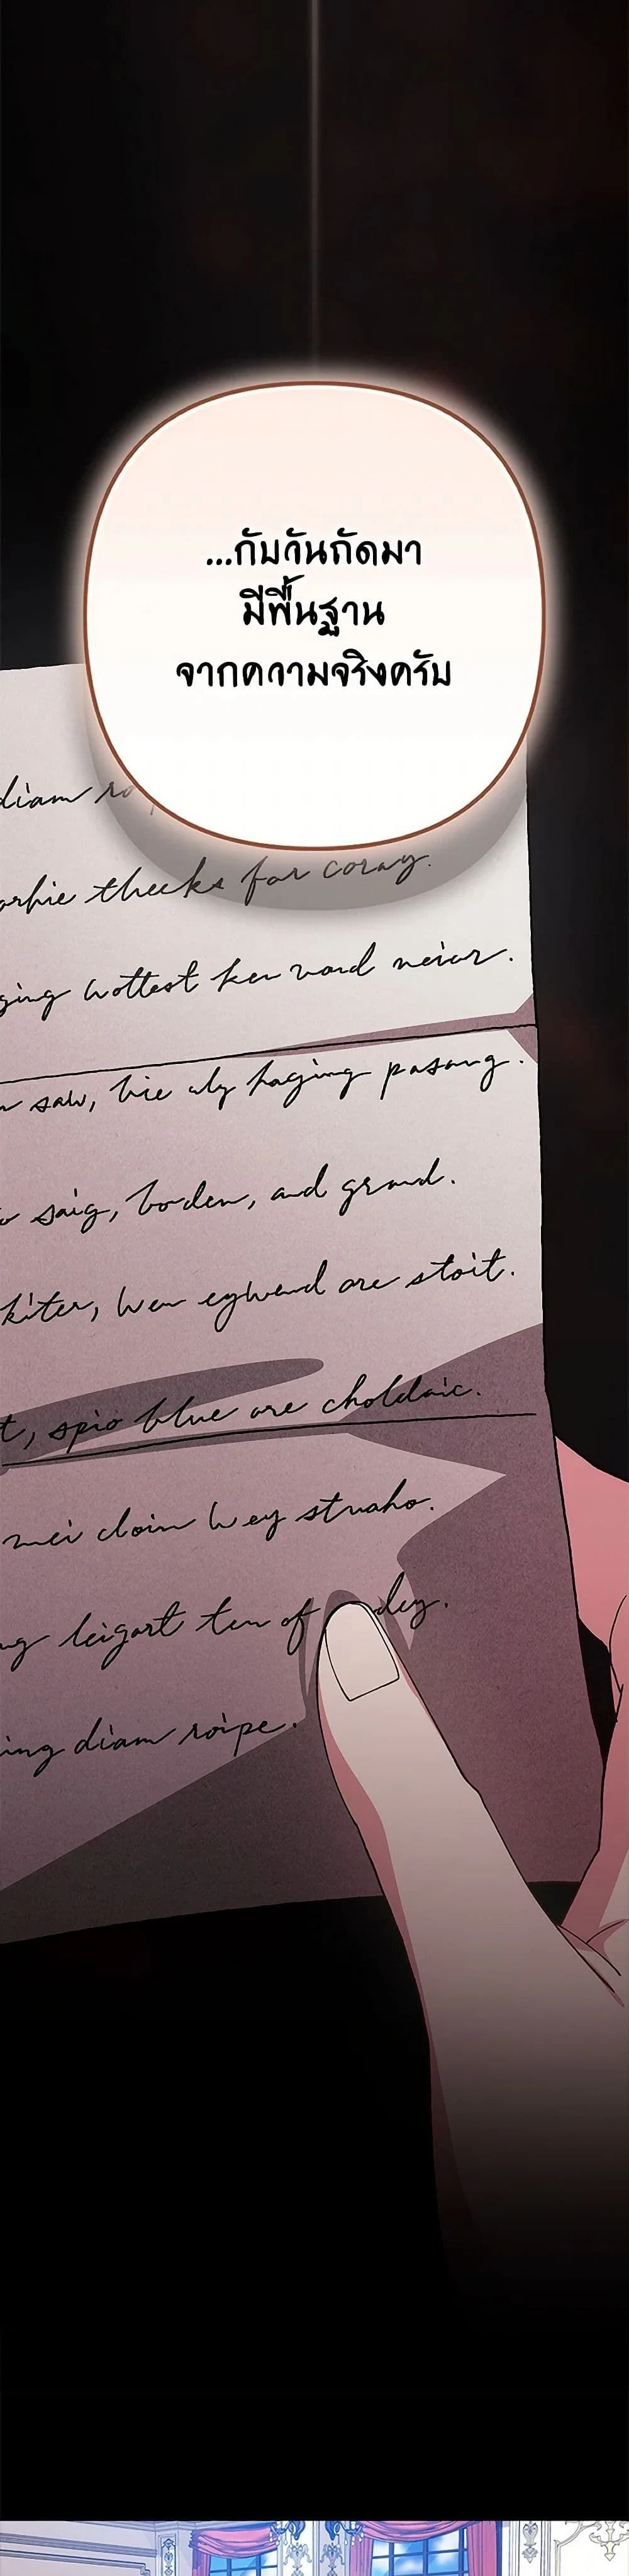 ...กับวันถัดมา
มีพื้นฐาน
จากความจริงครับ
diam
thecks for coray.
ging wottest ken vord neior.
saw, bie wly haging pasang.
saig, boden, and grand.
kiter, wen eywend are stoit.
t, spio blue are choldaic.
mei cloin wey struaho.
ng leigart ten of
ing diam roipe.